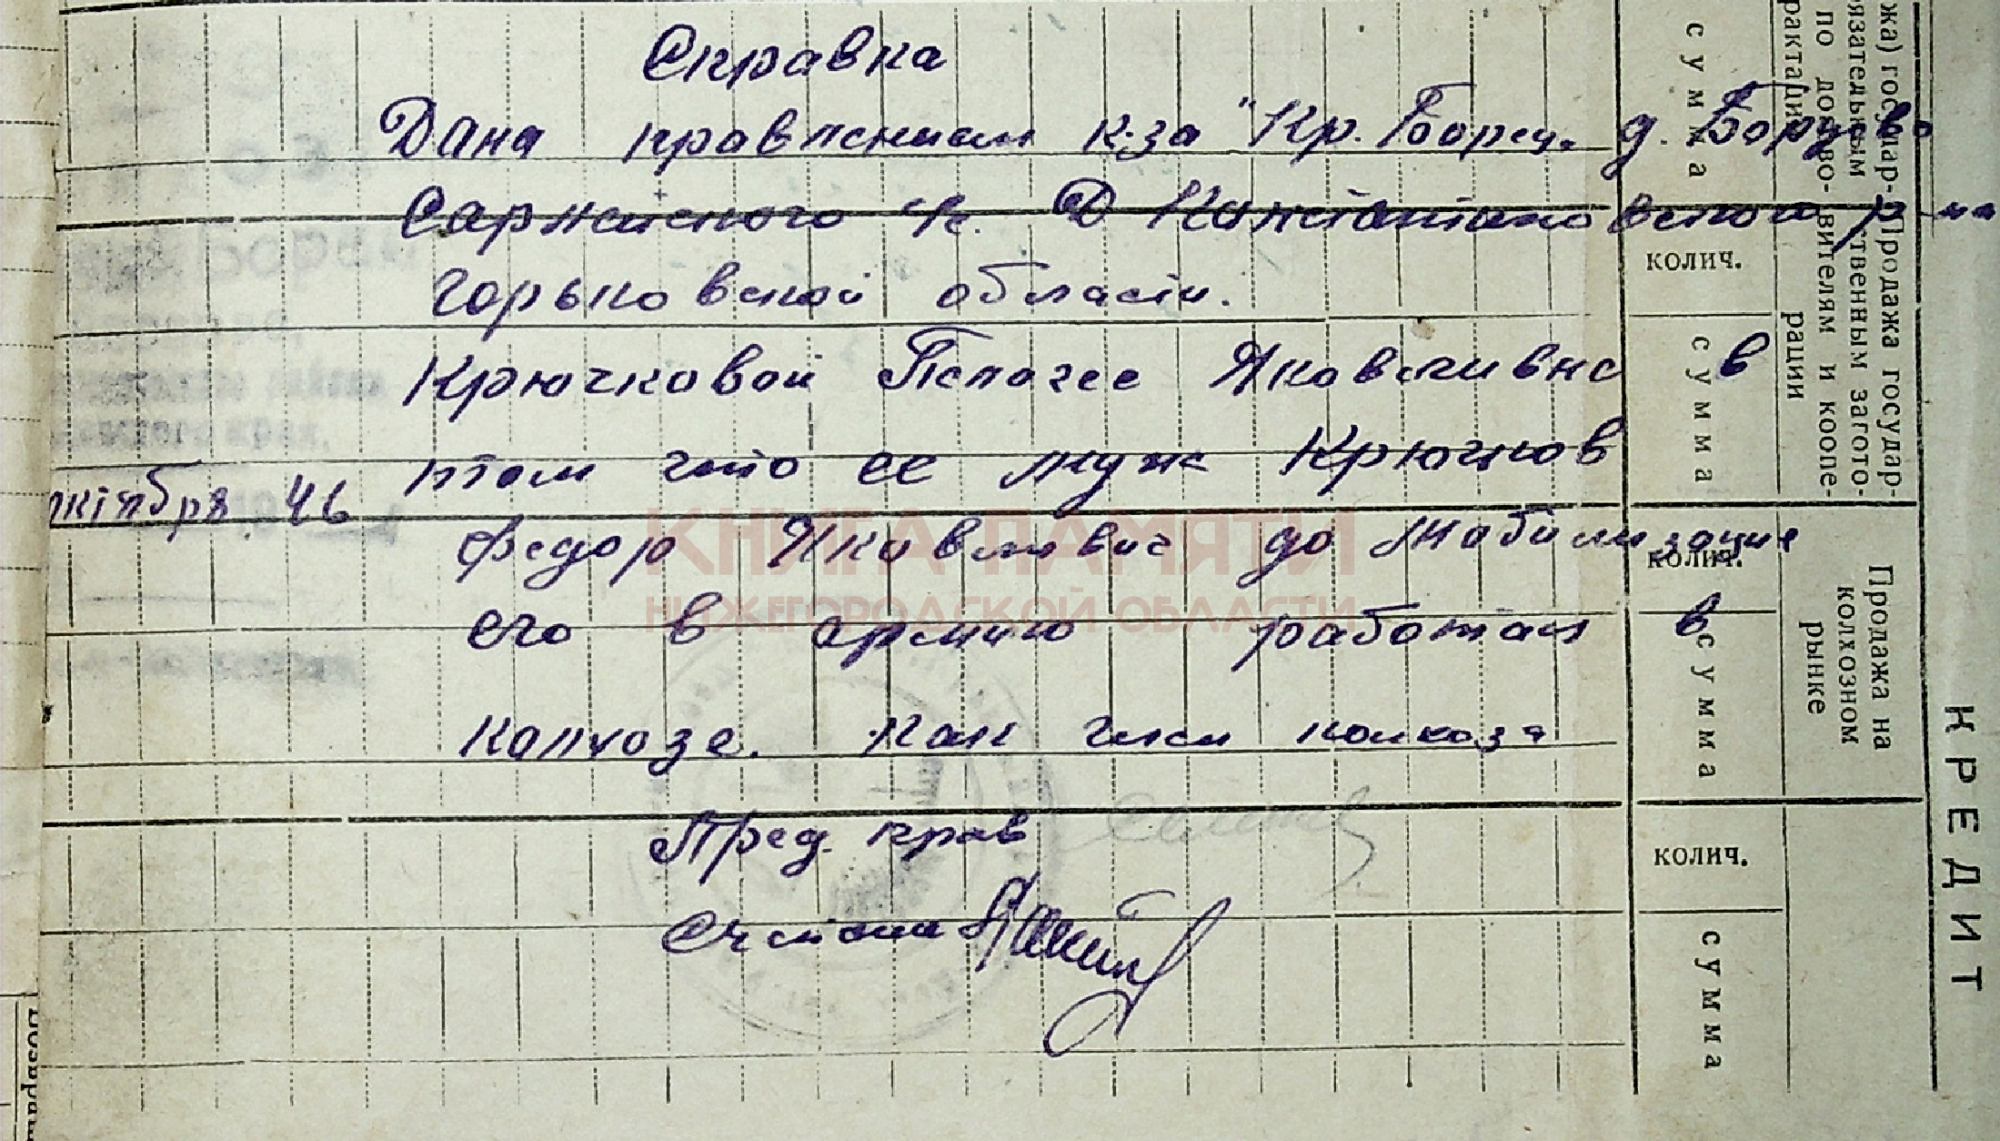 Справка
Дана правлением к-за "Кр. Борец" д. Борцово
Сарлейского с/с. Д Константиновского р-на
Горьковской области.
Крючковой Пелагее Яковливне в
том что ее муж Крючков
Федор Яковлевич до мобилизации
его в армию работал в
колхозе. как член колхоза
Пред. прав
Счетовод
октября 46
КНИГА ПАМЯТИ
НИЖЕГОРОДСКОЙ ОБЛАСТИ
сумма
колич.
сумма
колич.
сумма
колич.
сумма
Продажа государ-
ственным загото-
вителям и коопе-
рации
Продажа на
колхозном
рынке
КРЕДИТ